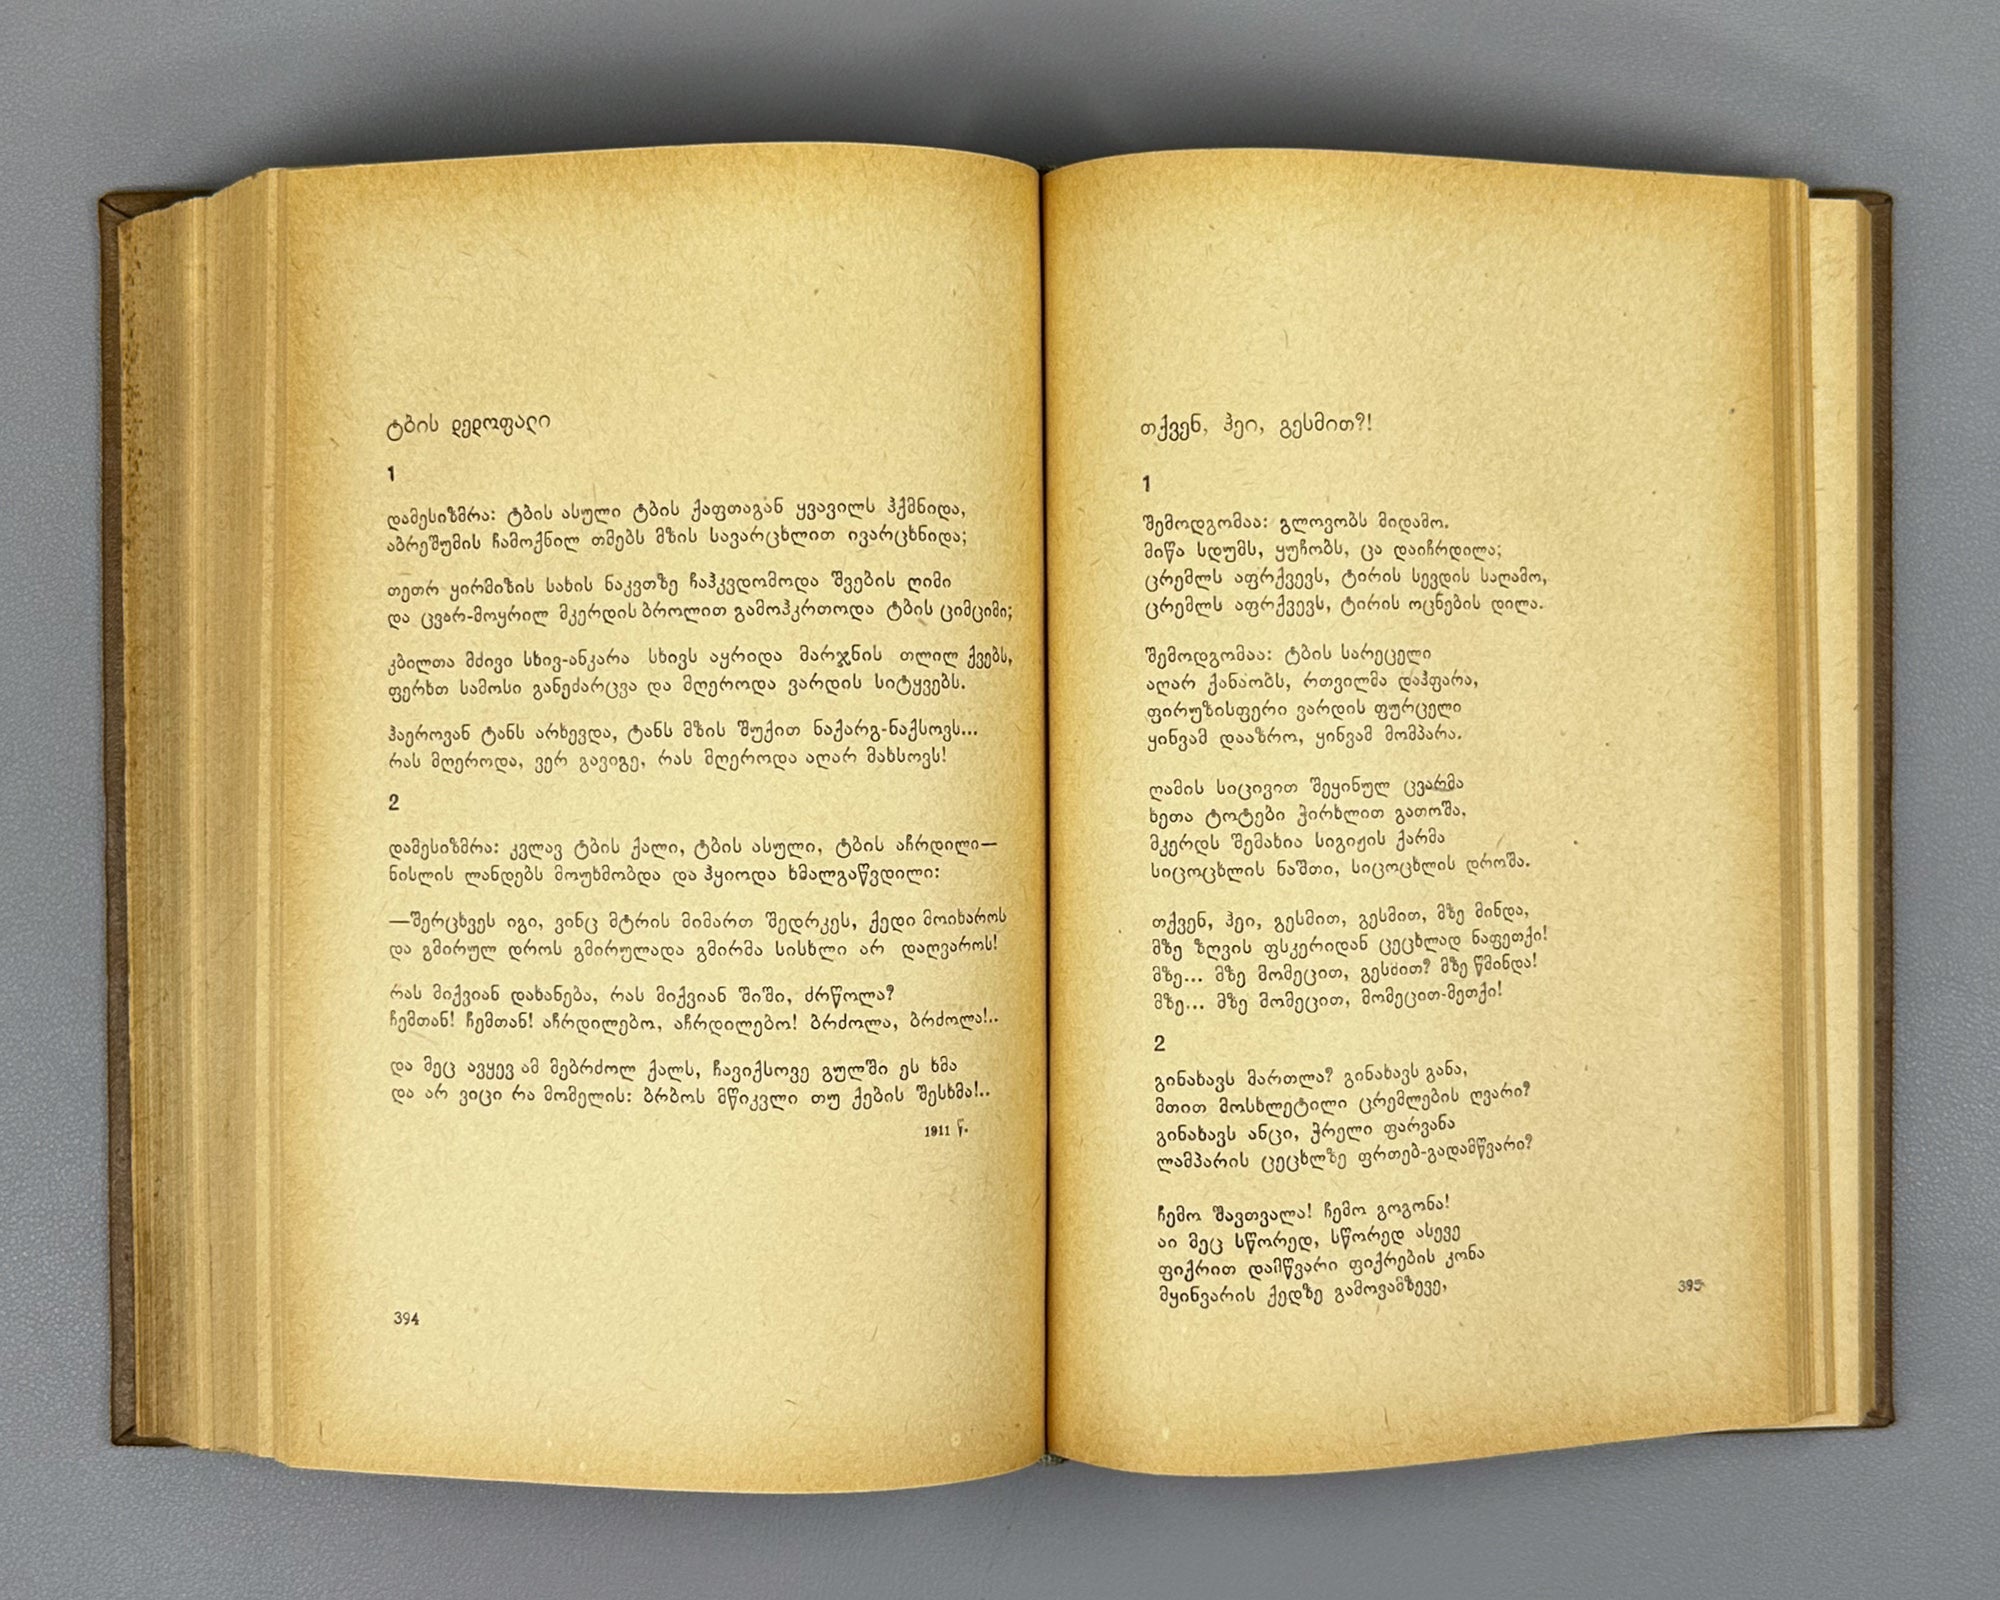 ტბის დედოფალი
1
დამესიზმრა: ტბის ასული ტბის ქაფთაგან ყვავილს ჰქმნიდა,
აბრეშუმის ჩამოქნილ თმებს მზის სავარცხლით ივარცხნიდა;
თეთრ ყირმიზის სახის ნაკვთზე ჩაჰკვდომოდა შვების ღიმი
და ცვარ-მოყრილ მკერდის ბროლით გამოჰკრთოდა ტბის ციმციმი;
კბილთა მძივი სხივ-ანკარა სხივს აყრიდა მარჯნის თლილ ქვებს,
ფერხთ სამოსი განეძარცვა და მღეროდა ვარდის სიტყვებს.
ჰაეროვან ტანს არხევდა, ტანს მზის შუქით ნაქარგ-ნაქსოვს...
რას მღეროდა, ვერ გავიგე, რას მღეროდა აღარ მახსოვს!
2
დამესიზმრა: კვლავ ტბის ქალი, ტბის ასული, ტბის აჩრდილი—
ნისლის ლანდებს მოუხმობდა და ჰყიოდა ხმალგაწვდილი:
—შერცხვეს იგი, ვინც მტრის მიმართ შედრკეს, ქედი მოიხაროს
და გმირულ დროს გმირულადა გმირმა სისხლი არ დაღვაროს!
რას მიქვიან დახანება, რას მიქვიან შიში, ძრწოლა?
ჩემთან! ჩემთან! აჩრდილებო, აჩრდილებო! ბრძოლა, ბრძოლა!..
და მეც ავყევ ამ მებრძოლ ქალს, ჩავიქსოვე გულში ეს ხმა
და არ ვიცი რა მომელის: ბრბოს მწიკვლი თუ ქების შესხმა!..
1911 წ.
394
თქვენ, ჰეი, გესმით?!
1
შემოდგომაა: გლოვობს მიდამო.
მიწა სდუმს, ყუჩობს, ცა დაიჩრდილა;
ცრემლს აფრქვევს, ტირის სევდის საღამო,
ცრემლს აფრქვევს, ტირის ოცნების დილა.
შემოდგომაა: ტბის სარეცელი
აღარ ქანაობს, რთვილმა დაჰფარა,
ფირუზისფერი ვარდის ფურცელი
ყინვამ დააზრო, ყინვამ მომპარა.
ღამის სიცივით შეყინულ ცვარმა
ხეთა ტოტები ჭირხლით გათოშა,
მკერდს შემახია სიგიჟის ქარმა
სიცოცხლის ნაშთი, სიცოცხლის დროშა.
თქვენ, ჰეი, გესმით, გესმით, მზე მინდა,
მზე ზღვის ფსკერიდან ცეცხლად ნაფეთქი!
მზე... მზე მომეცით, გესმით? მზე წმინდა!
მზე... მზე მომეცით, მომეცით-მეთქი!
2
გინახავს მართლა? გინახავს განა,
მთით მოსხლეტილი ცრემლების ღვარი?
გინახავს ანცი, ჭრელი ფარვანა
ლამპარის ცეცხლზე ფრთებ-გადამწვარი?
ჩემო შავთვალა! ჩემო გოგონა!
აი მეც სწორედ, სწორედ ასევე
ფიქრით დამწვარი ფიქრების კონა
მყინვარის ქედზე გამოვამზევე,
395